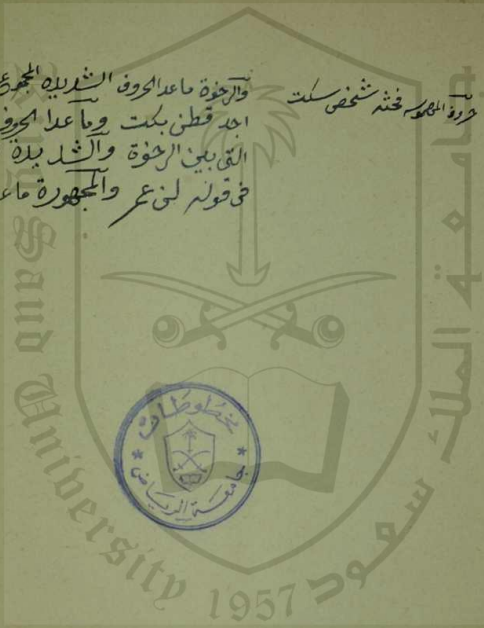 حروف المهموسه فحثه شخص سكت
والرخوة ماعدا الحروف الشديده المجموع
اجد قطن بكت وما عدا الحروف
التى بين الرخوة والشديدة
فى قوله لن عمر والمجهورة ماعد
مخطوطات
جامعة الرياض
جامعة الملك سعود
King Saud University
1957